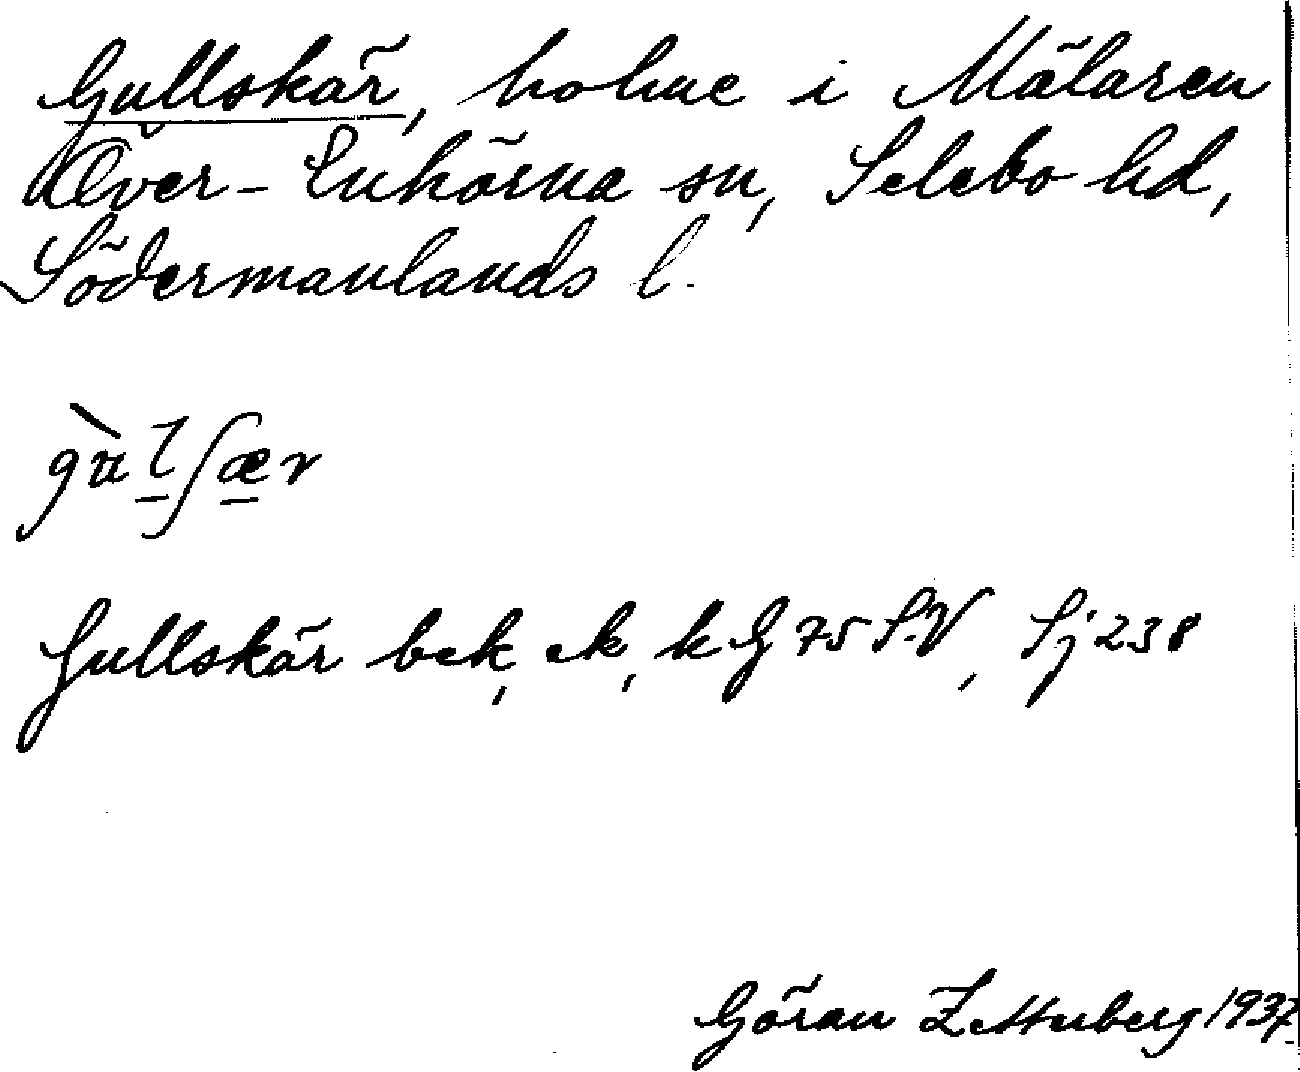 Gullskär, holme i Mälaren
Över-Enhörna sn, Selebo hd,
Södermanlands l.
gu̇lʃær
Gullskär bek, ek, kG 75 S.V, Sj 238
Göran Zetterberg 1937